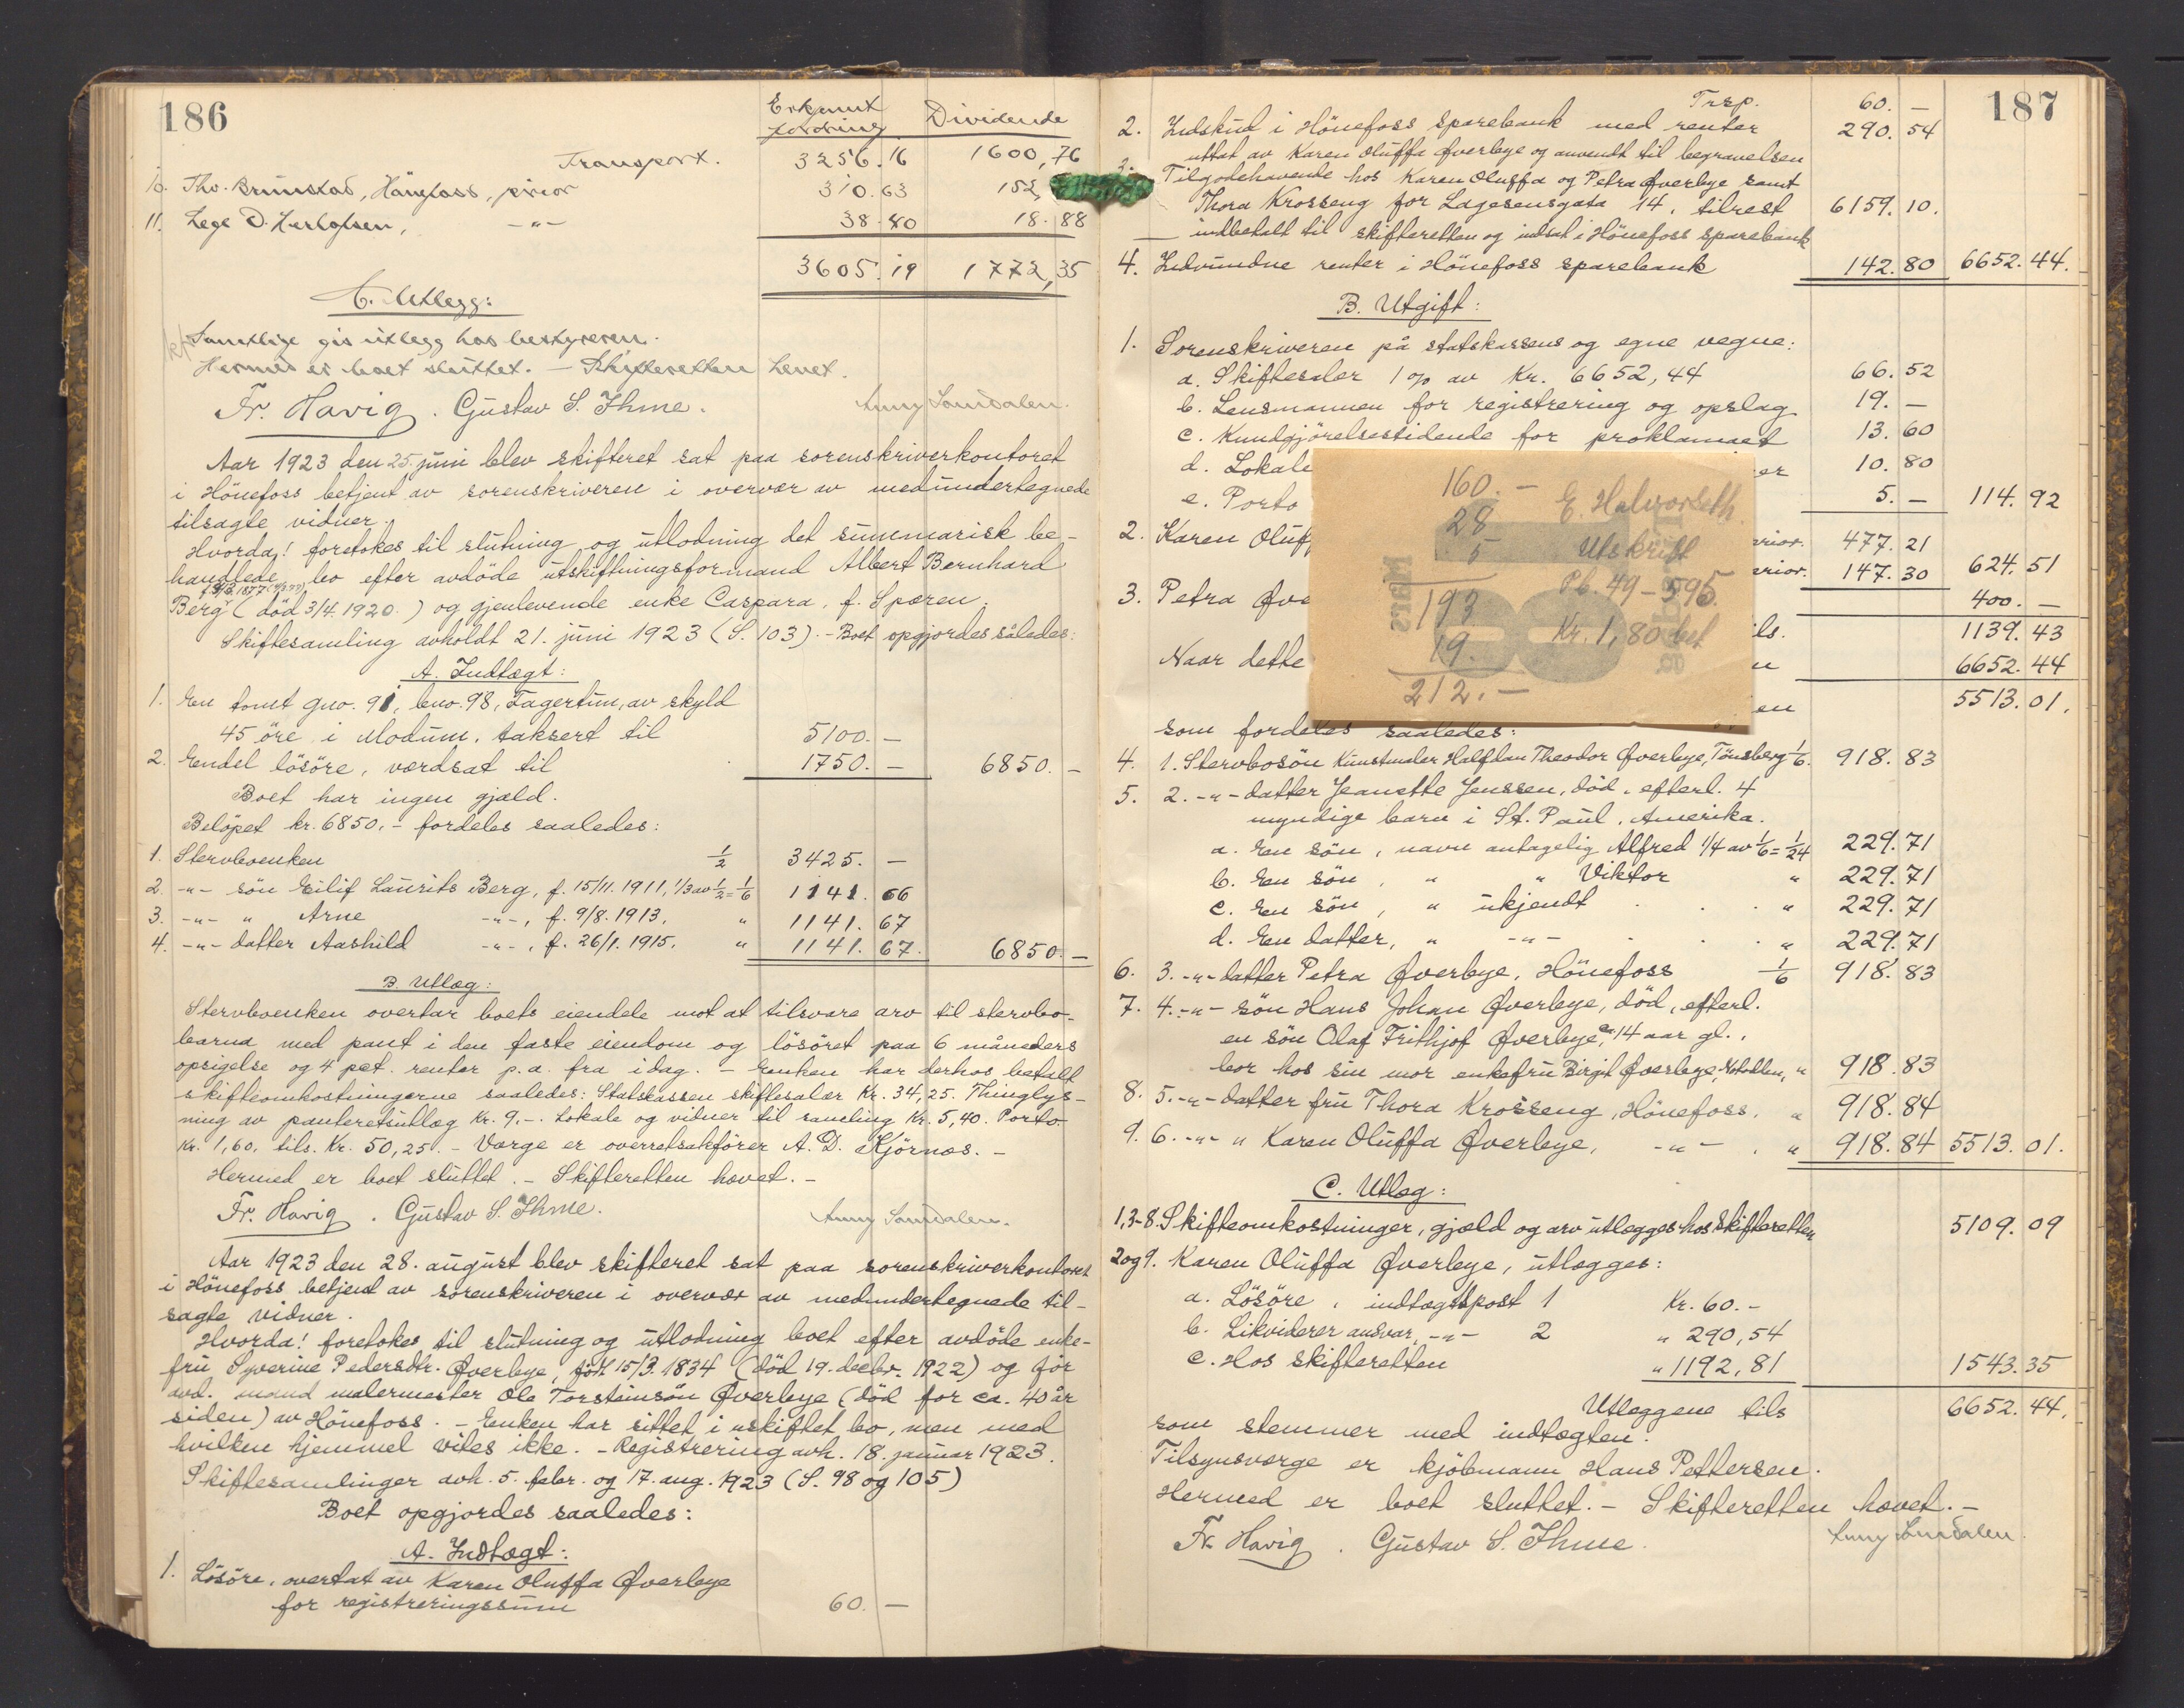 186
Erkjent fordring Dividende
Transport. 3256.16 1600,76
10. Thv. Brunstad, Hönefoss, prior 310.63 152,
11. Læge O. Herlofsen, -"- 38.40 18.88
3605.19 1772,35
C. Utlegg:
Samtlige gis utlegg hos bestyreren.
Hermed er boet sluttet. — Skifteretten hevet.
Fr. Havig. Gustav S. Ihme. Anny Sandalen.
Aar 1923 den 25. juni blev skifteret sat paa sorenskriverkontoret
i Hönefoss betjent av sorenskriveren i overvær av medundertegnede
tilsagte vidner.
Hvorda! foretokes til slutning og utlodning det summarisk be-
handlede bo efter avdöde utskiftningsformand Albert Bernhard
Berg (död 3/4 1920.) og gjenlevende enke Caspara, f. Sporen.
Skiftesamling avholdt 21. juni 1923 (S. 103). - Boet opgjordes således:
A. Indtægt:
1. En tomt gno. 91, bno. 98, Fagertun, av skyld
45 öre i Modum, taksert til 5100. —
2. Endel lösöre, værdsat til 1750. — 6850. —
Boet har ingen gjæld.
Belöpet kr. 6850,- fordeles saaledes:
1. Stervboenken 1/2 3425. —
2. -"- sön Eilif Laurits Berg, f. 15/11. 1911, 1/3 av 1/2 = 1/6 1141. 66
3. -"- " Arne -"-, f. 9/8. 1913, " 1141. 67
4. -"- datter Aashild -"-, f. 26/1. 1915, " 1141. 67. 6850. —
B. Utlæg:
Stervboenken overtar boets eiendele mot at tilsvare arv til stervbo-
barna med pant i den faste eiendom og lösöret paa 6 måneders
opsigelse og 4 pct. renter p.a. fra idag. — Enken har derhos betalt
skifteomkostningerne saaledes: Statskassen skiftesalær Kr. 34,25. Thinglys-
ning av panteretsutlæg Kr. 9.-. Lokale og vidner til samling Kr. 5,40. Porto
Kr. 1,60, tils. Kr. 50,25. - Værge er overretsakfører A. D. Kjörnæs. -
Hermed er boet sluttet. - Skifteretten hævet. -
Fr. Havig. Gustav S. Ihme. Anny Sandalen.
Aar 1923 den 28. august blev skifteret sat paa sorenskriverkontoret
i Hönefoss betjent av sorenskriveren i overvær av medundertegnede til-
sagte vidner.
Hvorda! foretokes til slutning og utlodning boet efter avdöde enke-
fru Syverine Pedersdtr. Øverbye, födt 15/3. 1834 (död 19. decbr. 1922) og för
avd. mand malermester Ole Torsteinsön Øverbye (död for ca. 40 år
siden) av Hönefoss. - Enken har sittet i uskiftet bo, men med
hvilken hjemmel vites ikke. - Registrering avh. 18. januar 1923.
Skiftesamlinger avh. 5. febr. og 17. aug. 1923 (S. 98 og 105)
Boet opgjordes saaledes:
A. Indtægt:
1. Lösöre, overtat av Karen Oluffa Øverbye
for registreringssum 60. —
187
Trsp. 60. —
2. Indskud i Hönefoss sparebank med renter 290. 54
uttat av Karen Oluffa Øverbye og anvendt til begravelsen
3. Tilgodehavende hos Karen Oluffa og Petra Øverbye samt
Thora Krosseng for Lagesensgata 14, tilrest 6159. 10.
indbetalt til skifteretten og indsat i Hönefoss sparebank
4. Indvundne renter i Hönefoss sparebank 142. 80 6652. 44.
B. Utgift:
1. Sorenskriveren på statskassens og egne vegne:
a. Skiftesalær 1% av Kr. 6652,44 66. 52
b. Lensmannen for registrering og opslag 19. —
c. Kundgjörelsestidende for proklamaet 13. 60
d. Lokale er 10. 80
e. Porto 5. — 114. 92
2. Karen Oluf rior. 477. 21
rior. 147. 30 624. 51
3. Petra Øve 400. —
ls. 1139. 43
Naar dette 6652. 44
en 5513. 01.
160. — E. Halvorseth.
28 Utskrift
5 Pb. 49 - 595.
193 Kr. 1,80 bet
19.
212. —
som fordeles saaledes:
4. 1. Stervbosön Kunstmaler Halfdan Theodor Øverbye, Tönsberg 1/6. 918. 83
5. 2. -"- datter Jeanette Jenssen, död, efterl. 4
myndige barn i St. Paul, Amerika.
a. En sön, navn antagelig Alfred 1/4 av 1/6 = 1/24 229. 71
b. En sön, " " Viktor " 229. 71
c. En sön, " ukjendt " 229. 71
d. En datter, " -"- " 229. 71
6. 3. -"- datter Petra Øverbye, Hönefoss 1/6 918. 83
7. 4. -"- sön Hans Johan Øverbye, död, efterl.
en sön Olaf Frithjof Øverbye, ca. 14 aar gl.,
bor hos sin mor enkefru Birgit Øverbye, Notodden, " 918. 83
8. 5. -"- datter fru Thora Krosseng, Hönefoss, " 918. 84
9. 6. -"- " Karen Oluffa Øverbye, -"-, " 918. 84 5513. 01.
C. Utlæg:
1, 3-8. Skifteomkostninger, gjæld og arv utlægges hos skifteretten 5109. 09
2 og 9. Karen Oluffa Øverbye, utlægges:
a. Lösöre, indtægtspost 1 Kr. 60. -
b. Likviderer ansvar, -"- 2 " 290,54
c. Hos skifteretten " 1192,81 1543. 35
Utlæggene tils 6652. 44.
som stemmer med indtægten.
Tilsynsværge er kjöbmann Hans Pettersen.
Hermed er boet sluttet. - Skifteretten hævet. -
Fr. Havig. Gustav S. Ihme. Anny Sandalen.